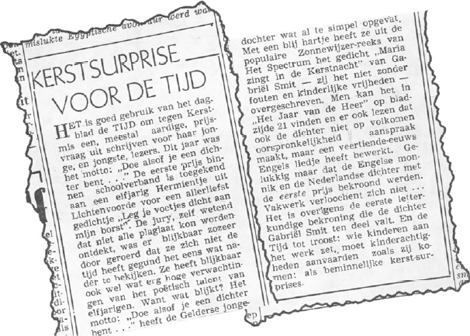 mislukte Egyptische avontuur werd
KERSTSURPRISE
VOOR DE TIJD
HET is goed gebruik van het dag-
blad de TIJD om tegen Kerst-
mis een, meestal aardige, prijs-
vraag uit schrijven voor haar jon-
ge, en jongste, lezers. Dit jaar was
het motto: „Doe alsof je een dich-
ter bent . . ." De eerste prijs bin-
nen schoolverband is toegekend
aan een elfjarig Hermientje uit
Lichtenvoorde voor een allerliefst
gedichtje „Leg je voetjes dicht aan
mijn borst". De jury, zelf wetend
dat niet alle plagiaat kon worden
ontdekt, was er blijkbaar zozeer
door geroerd dat ze zich niet de
tijd heeft gegund het eens wat na-
der te bekijken. Ze heeft blijkbaar
ook wel wat erg hoge verwachtin-
gen van het poëtisch talent van
elfjarigen. Want wat blijkt? Het
motto: „Doe alsof je een dichter
bent . . ." heeft de Gelderse jonge
dochter wat al te simpel opgevat.
Met een blij hartje heeft ze uit de
populaire Zonnewijzer-reeks van
Het Spectrum het gedicht „Maria
zingt in de Kerstnacht" van Ga-
briël Smit — zij het niet zonder
fouten en kinderlijke vrijheden —
overgeschreven. Men kan het in
„Het Jaar van de Heer" op blad-
zijde 21 vinden en er ook lezen dat
ook de dichter niet op volkomen
oorspronkelijkheid aanspraak
maakt, maar een veertiende-eeuws
Engels liedje heeft bewerkt. Ge-
lukkig maar dat de Engelse mon-
nik en de Nederlandse dichter met
de eerste prijs bekroond werden.
Vakwerk verloochent zich niet . . .
Het is overigens de eerste letter-
kundige bekroning die de dichter
Gabriël Smit ten deel valt. En de
Tijd tot troost: wie kinderen aan
het werk zet, moet kinderachtig-
heden aanvaarden zoals zij ko-
men: als beminnelijke kerst-sur-
prises.